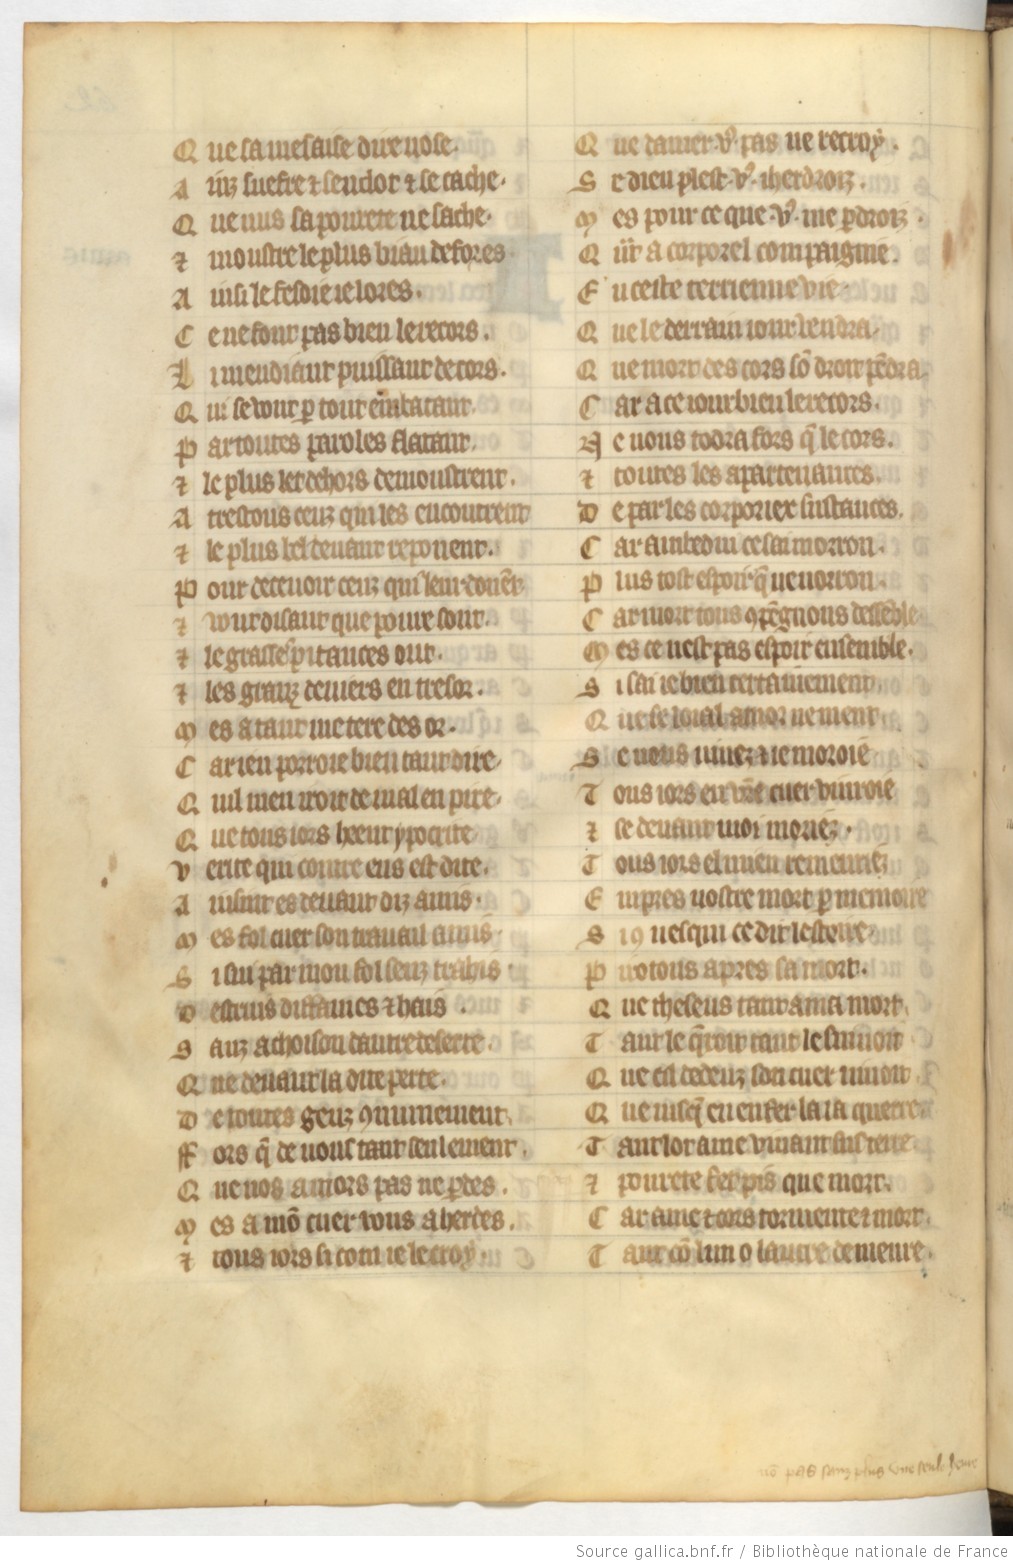 Que sa mesaise dire nose.
Ainz suefre ⁊ seudor ⁊ se cache.
Que nus sa pourete ne sache.
⁊ moustre le plus biau defores
Ainsi le fesoie ie lores.
Ce ne font pas bien le recors.
Li mendiant puissant de cors.
Qui se vont p̲ tout embatant.
Par toutes paroles flatant.
⁊ le plus let dehors demoustrent.
A trestous ceuz qui les encoutrent
⁊ le plus bel devant reponent.
Pour decevoir ceuz qui leur donēt
⁊ vont disant que poure sont.
⁊ le grasses pitances ont.
⁊ les granz deniers en tresor.
Mes a tant me tere des or.
Car ien porroie bien tant dire.
Quil men iroit de mal en pire.
Que tous iors heent ypocrite
Verite qui contre eus est dite.
Ainsint es devant diz amis.
Mes fol cuer son travail a mis.
Si sui par mon fol senz trahis.
Destruis diffames ⁊ hais.
Sanz achoison dautre deserte.
Que devant la dite perte.
De toutes genz 9munement.
Fors q̄ de vous tant seulement.
Que vos amors pas ne pdes.
Mes a mō cuer vous aherdes.
⁊ tous iors si com ie le croy.
Que damer v9 pas ne recroy.
Se dieu plest v9 iherdroiz.
Mes pour ce que v9 me pdroiz.
Quīt a corporel compaignie.
En ceste terrienne vie.
Que le derrain iour vendra.
Que mort des cors sō droit pēdra.
Car a ce iour bien le recors.
Ne vous todra fors q̄ le cors.
⁊ toutes les apartenances.
De par les corporiex sustances.
Car ambedui ce sai morron.
Plus tost espoir q̄ ne vorron.
Car mort tous 9pēgnons dessēble.
Mes ce nest pas espoir ensemble.
Si sai ie bien certainement.
Que se loial amor ne ment.
Se vous vivez ⁊ ie moroie
Tous iors en vr̄e cuer vivroie
⁊ se devant moi moriez.
Tous iors el mien revivriez
Empres vostre mort p̲ memoire
Si 9 vesqui ce dit lestoire.
Pirotous apres sa mort.
Que theseus tant ama mort.
Tant le q̄roit tant le sivoit
Que cil dedenz son cuer vivoit.
Que iusq̄ en enfer la la querre.
Tant lot ame vivant sus terre.
⁊ pourete fet pis que mort.
Car ame ⁊ cors tormente ⁊ mort.
Tant cō lun o lautre demeure.
nō pas sanz plus une seule heure